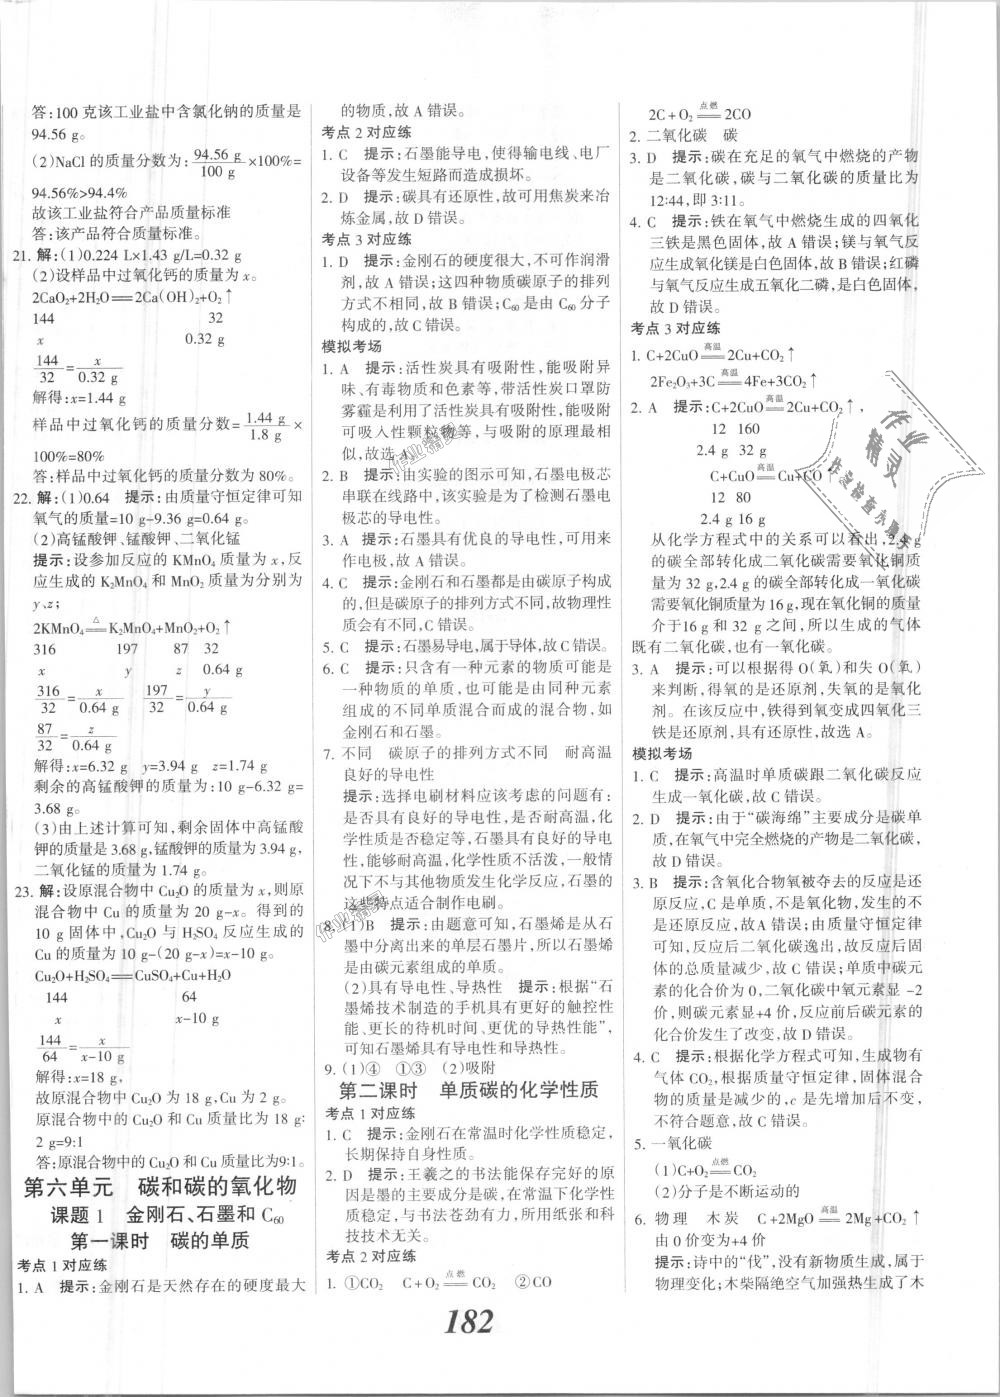 答:100克该工业盐中含氯化钠的质量是
94.56 g。
(2)NaCl的质量分数为:94.56 g/100 g×100%=
94.56%>94.4%
故该工业盐符合产品质量标准
答:该产品符合质量标准。
21. 解:(1)0.224 L×1.43 g/L=0.32 g
(2)设样品中过氧化钙的质量为x。
2CaO₂+2H₂O═2Ca(OH)₂+O₂↑
144 32
x 0.32 g
144/32=x/0.32 g
解得:x=1.44 g
样品中过氧化钙的质量分数=1.44 g/1.8 g×
100%=80%
答:样品中过氧化钙的质量分数为80%。
22. 解:(1)0.64 提示:由质量守恒定律可知
氧气的质量=10 g-9.36 g=0.64 g。
(2)高锰酸钾、锰酸钾、二氧化锰
提示:设参加反应的KMnO₄质量为x,反
应生成的K₂MnO₄和MnO₂质量为分别为
y、z;
2KMnO₄═(△)K₂MnO₄+MnO₂+O₂↑
316 197 87 32
x y z 0.64 g
316/32=x/0.64 g 197/32=y/0.64 g
87/32=z/0.64 g
解得:x=6.32 g y=3.94 g z=1.74 g
剩余的高锰酸钾的质量为:10 g-6.32 g=
3.68 g。
(3)由上述计算可知,剩余固体中高锰酸
钾的质量是3.68 g,锰酸钾的质量为3.94 g,
二氧化锰的质量为1.74 g。
23. 解:设原混合物中Cu₂O的质量为x,则原
混合物中Cu的质量为20 g-x。得到的
10 g固体中,Cu₂O与H₂SO₄反应生成的
Cu的质量为10 g-(20 g-x)=x-10 g。
Cu₂O+H₂SO₄═CuSO₄+Cu+H₂O
144 64
x x-10 g
144/64=x/x-10 g
解得:x=18 g,
故原混合物中Cu₂O为18 g,Cu为2 g。
原混合物中的Cu₂O和Cu质量比为18 g:
2 g=9:1
答:原混合物中的Cu₂O和Cu质量比为9:1。
第六单元 碳和碳的氧化物
课题1 金刚石、石墨和C₆₀
第一课时 碳的单质
考点1对应练
1. A 提示:金刚石是天然存在的硬度最大
的物质,故A错误。
考点2对应练
1. C 提示:石墨能导电,使得输电线、电厂
设备等发生短路而造成损坏。
2. D 提示:碳具有还原性,故可用焦炭来冶
炼金属,故D错误。
考点3对应练
1. D 提示:金刚石的硬度很大,不可作润滑
剂,故A错误;这四种物质碳原子的排列
方式不相同,故B错误;C₆₀是由C₆₀分子
构成的,故C错误。
模拟考场
1. A 提示:活性炭具有吸附性,能吸附异
味、有毒物质和色素等,带活性炭口罩防
雾霾是利用了活性炭具有吸附性,能吸附
可吸入性颗粒物等,与吸附的原理最相
似,故选A。
2. B 提示:由实验的图示可知,石墨电极芯
串联在线路中,该实验是为了检测石墨电
极芯的导电性。
3. A 提示:石墨具有优良的导电性,可用来
作电极,故A错误。
4. C 提示:金刚石和石墨都是由碳原子构成
的,但是碳原子的排列方式不同,故物理性
质会有不同,C错误。
5. C 提示:石墨易导电,属于导体,故C错误。
6. C 提示:只含有一种元素的物质可能是
一种物质的单质,也可能是由同种元素
组成的不同单质混合而成的混合物,如
金刚石和石墨。
7. 不同 碳原子的排列方式不同 耐高温
良好的导电性
提示:选择电刷材料应该考虑的问题有:
是否具有良好的导电性,是否耐高温,化
学性质是否稳定等,石墨具有良好的导电
性,能够耐高温,化学性质不活泼,一般情
况下不与其他物质发生化学反应,石墨的
这些特点适合制作电刷。
8. (1)B 提示:由题意可知,石墨烯是从石
墨中分离出来的单层石墨片,所以石墨烯
是由碳元素组成的单质。
(2)具有导电性、导热性 提示:根据“石
墨烯技术制造的手机具有更好的触控性
能、更长的待机时间、更优的导热性能”,
可知石墨烯具有导电性和导热性。
9. (1)④ ①③ (2)吸附
第二课时 单质碳的化学性质
考点1对应练
1. C 提示:金刚石在常温时化学性质稳定,
长期保持自身性质。
2. D 提示:王羲之的书法能保存完好的原
因是墨的主要成分是碳,在常温下化学性
质稳定,与书法苍劲有力、所用纸张和科
技技术无关。
考点2对应练
1. ①CO₂ C+O₂═(点燃)CO₂ ②CO
2C+O₂═(点燃)2CO
2. 二氧化碳 碳
3. D 提示:碳在充足的氧气中燃烧的产物
是二氧化碳,碳与二氧化碳的质量比为
12:44,即3:11。
4. C 提示:铁在氧气中燃烧生成的四氧化
三铁是黑色固体,故A错误;镁与氧气反
应生成氧化镁是白色固体,故B错误;红磷
与氧气反应生成五氧化二磷,是白色固体,
故D错误。
考点3对应练
1. C+2CuO═(高温)2Cu+CO₂↑
2Fe₂O₃+3C═(高温)4Fe+3CO₂↑
2. A 提示:C+2CuO═(高温)2Cu+CO₂↑
12 160
2.4 g 32 g
C+CuO═(高温)Cu+CO↑
12 80
2.4 g 16 g
从化学方程式中的关系可以看出,2.4 g
的碳全部转化成二氧化碳需要氧化铜质
量为32 g,2.4 g的碳全部转化成一氧化碳
需要氧化铜质量为16 g,现在氧化铜的质量
介于16 g和32 g之间,所以生成的气体
既有二氧化碳,也有一氧化碳。
3. A 提示:可以根据得O(氧)和失O(氧)
来判断,得氧的是还原剂,失氧的是氧化
剂。在该反应中,铁得到氧变成四氧化三
铁是还原剂,具有还原性,故选A。
模拟考场
1. C 提示:高温时单质碳跟二氧化碳反应
生成一氧化碳,故C错误。
2. D 提示:由于“碳海绵”主要成分是碳单
质,在氧气中完全燃烧的产物是二氧化碳,
故D错误。
3. B 提示:含氧化合物氧被夺去的反应是
还原反应,C是单质,不是氧化物,发生的不
是还原反应,故A错误;由质量守恒定律
可知,反应后二氧化碳逸出,故反应后固
体的总质量减少,故C错误;单质中碳元素
的化合价为0,二氧化碳中氧元素显-2
价,则碳元素显+4价,反应前后碳元素的
化合价发生了改变,故D错误。
4. C 提示:根据化学方程式可知,生成物有
气体CO₂,根据质量守恒定律,固体混合
物的质量是减少的,c是先增加后不变,
不符合题意,故C错误。
5. 一氧化碳
(1)C+O₂═(点燃)CO₂
(2)分子是不断运动的
6. 物理 木炭 C+2MgO═(高温)2Mg+CO₂↑
由0价变为+4价
提示:诗中的“伐”,没有新物质生成,属于
物理变化;木柴隔绝空气加强热生成了木
作业精灵
作业检查小助手
作业精灵
作业精灵
182